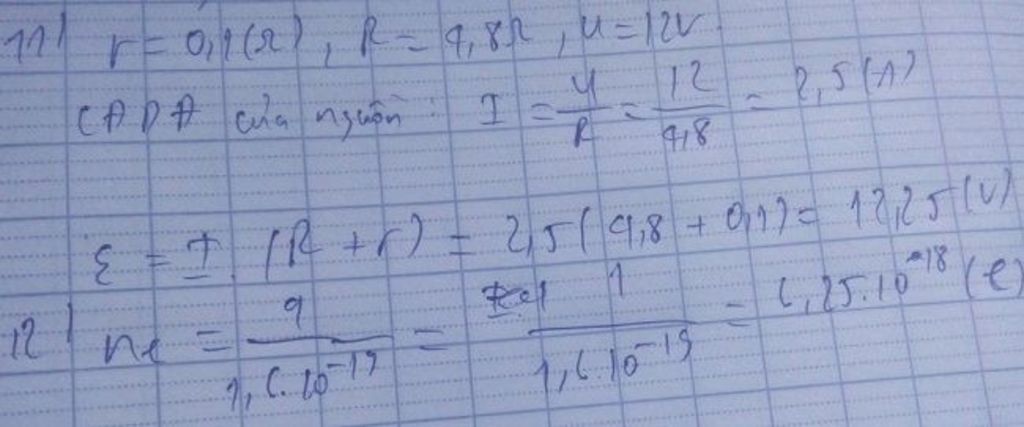 11) r = 0,1(Ω), R = 4,8Ω, U = 12V
CĐDĐ của nguồn: I = U/R = 12/4,8 = 2,5(A)
ε = I.(R + r) = 2,5(4,8 + 0,1) = 12,25(V)
12) ne = q/1,6.10^-19 = 1/1,6.10^-19 = 6,25.10^-18 (e)